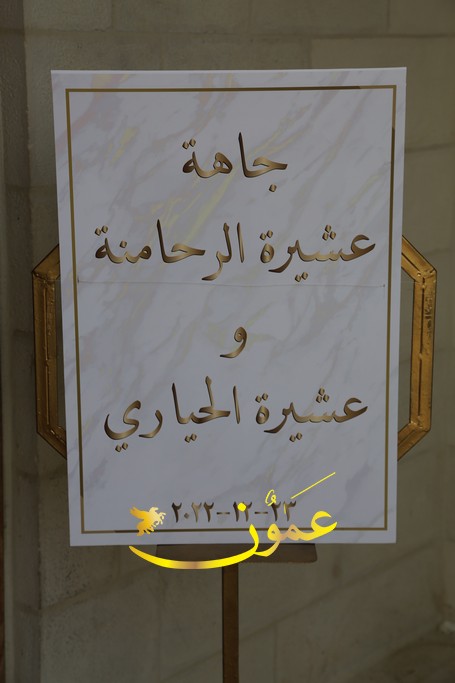 جاهة
عشيرة الرحامنة
و
عشيرة الحياري
٢٠٢٢-١٢-٢٣
عمون